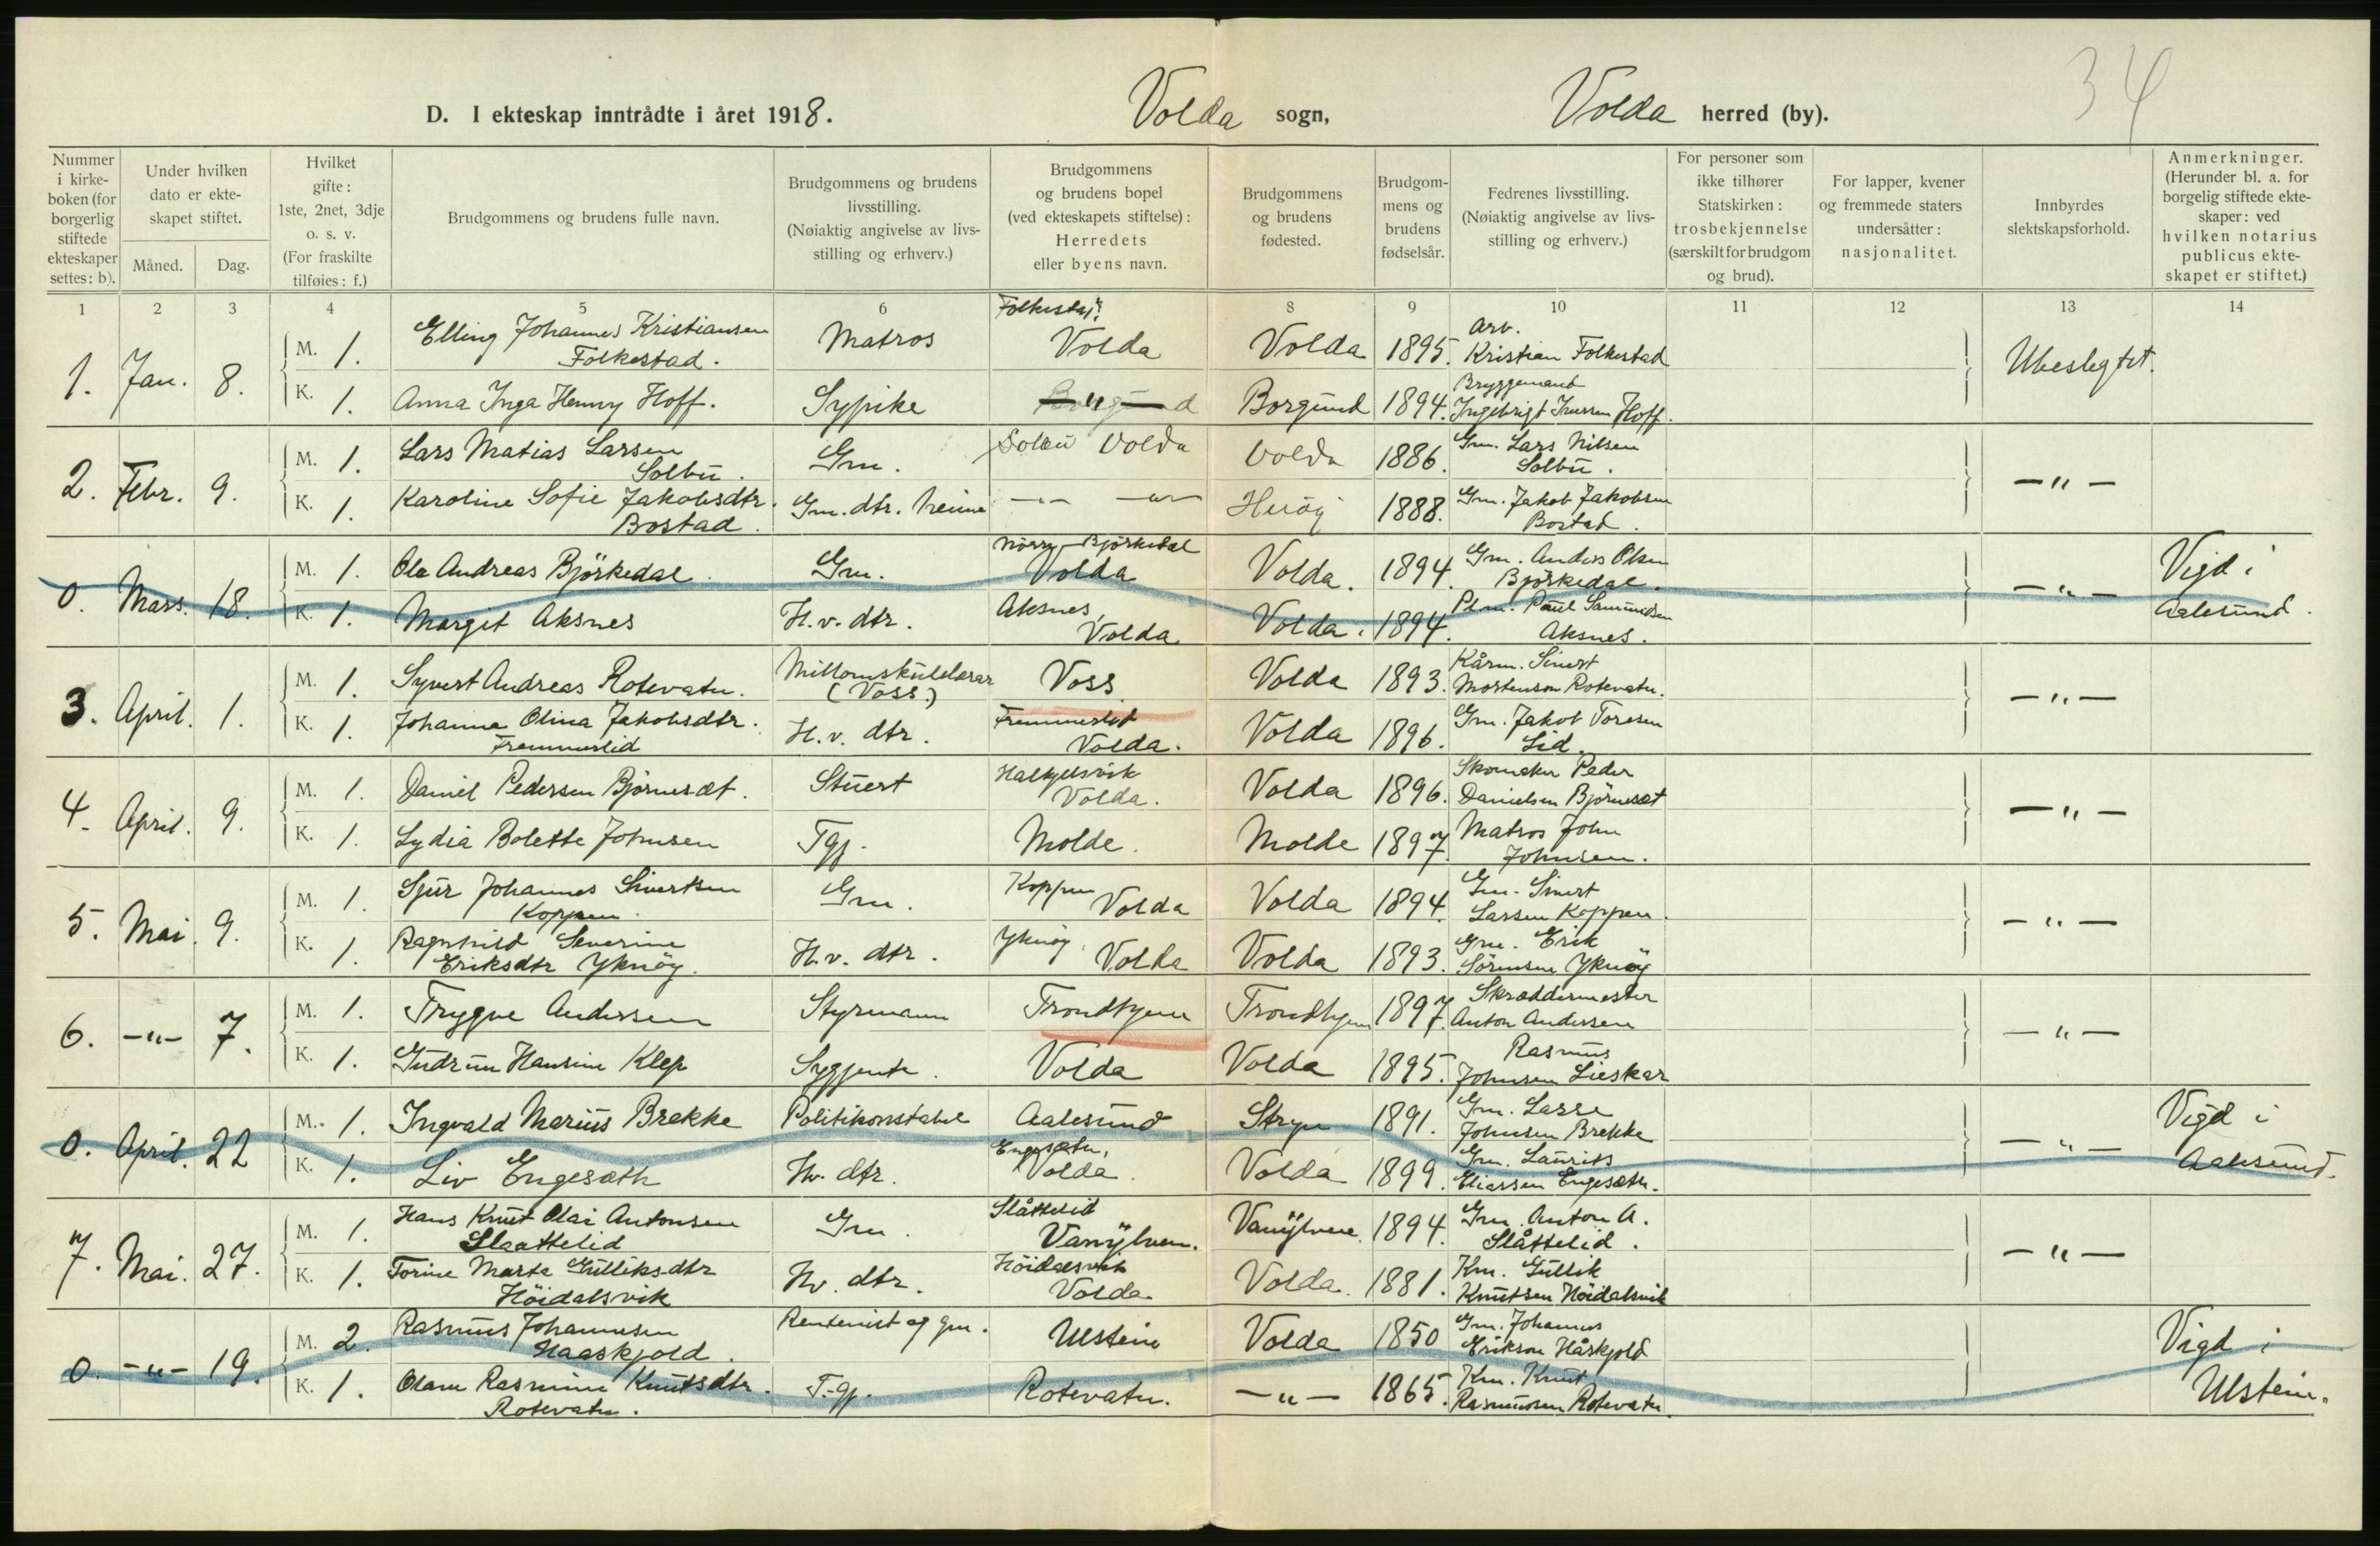 34
D. I ekteskap inntrådte i året 1918. Volda sogn, Volda herred (by).
Nummer i kirke-boken (for borgerlig stiftede ekteskaper settes: b).
Under hvilken dato er ekte-skapet stiftet.
Måned. Dag.
Hvilket gifte: 1ste, 2net, 3dje o. s. v. (For fraskilte tilføies: f.)
Brudgommens og brudens fulle navn.
Brudgommens og brudens livsstilling. (Nøiaktig angivelse av livs-stilling og erhverv.)
Brudgommens og brudens bopel (ved ekteskapets stiftelse): Herredets eller byens navn.
Brudgommens og brudens fødested.
Brudgom-mens og brudens fødselsår.
Fedrenes livsstilling. (Nøiaktig angivelse av livs-stilling og erhverv.)
For personer som ikke tilhører Statskirken: trosbekjennelse (særskilt for brudgom og brud).
For lapper, kvener og fremmede staters undersåtter: nasjonalitet.
Innbyrdes slektskapsforhold.
Anmerkninger. (Herunder bl. a. for borgelig stiftede ekte-skaper: ved hvilken notarius publicus ekte-skapet er stiftet.)
1 2 3 4 5 6 8 9 10 11 12 13 14
1. Jan. 8.
M. 1. Elling Johannes Kristiansen Folkestad. Matros Volda Volda 1895. Arb. Kristian Folkestad Ubeslegtet.
K. 1. Anna Inga Henny Hoff. Sypike Borgund 1894. Bryggemand Ingebrigt Hoff.
2. Febr. 9.
M. 1. Lars Matias Larsen Solbu. Gm. Solbu Volda Volda 1886. Gm. Lars Nilsen Solbu. —"—
K. 1. Karoline Sofie Jakobsdtr. Bostad. Gm. dtr. heime —"— —"— Herøy 1888. Gm. Jakob Jakobsen Bostad.
0. Mars. 18.
M. 1. Ole Andreas Björkedal. Gm. Björkedal Volda Volda. 1894. Gm. Anders Olsen Björkedal. —"— Vigd i Aalesund.
K. 1. Margit Aksnes H.v. dtr. Aksnes, Volda Volda. 1894. Plm. Paul Samundsen Aksnes.
3. April. 1.
M. 1. Syvert Andreas Rotevatn. Millomskulelærar (Voss.) Voss Volda 1893. Kårm. Sivert Mortenson Rotevatn. —"—
K. 1. Johanna Olina Jakobsdtr. Fremmerlid H.v. dtr. Fremmerlid Volda. Volda 1896. Gm. Jakob Toresen Lid.
4. April. 9.
M. 1. Daniel Pedersen Björnesæt. Stuert Halkjelsvik Volda. Volda 1896. Skomaker Peder Danielsen Björnesæt —"—
K. 1. Lydia Bolette Johnsen Tgj. Molde. Molde 1897. Matros John Johnsen.
5. Mai. 9.
M. 1. Sjur Johannes Sivertsen Koppen. Gm. Koppen Volda Volda 1894. Gm. Sivert Larsen Koppen. —"—
K. 1. Ragnhild Severine Eriksdtr Yksnöy. H.v. dtr. Volda Volda 1893. Gm. Erik Sörensen
6. —"— 7.
M. 1. Trygve Andersen Styrmann Trondhjem Trondhjem 1897. Skræddermester Anton Andersen —"—
K. 1. Gudrun Hansine Klep Syjente. Volda Volda 1895. Rasmus Johnsen Lieskar
0. April. 22
M. 1. Ingvald Marius Brekke Politikonstabel Aalesund Stryn 1891. Gm. Lasse Johnsen Brekke —"— Vigd i Aalesund.
K. 1. Liv Engesæth Hv. dtr. Engesætn, Volda. Volda 1899. Gm. Laurits Eliassen Engesætn.
7. Mai. 27.
M. 1. Hans Knut Olai Antonsen Slaattelid Gm. Slåttelid Vanylven. Vanylven. 1894. Gm. Anton A. Slåttelid. —"—
K. 1. Torine Marta Gulliksdtr Höidalsvik Hv. dtr. Höidalsvik Volda. Volda. 1881. Km. Gullik Knutsen Höidalsvik
0. —"— 19.
M. 2. Rasmus Johannesen Haaskjold. Rentenist og gm. Ulstein Volda 1850 Gm. Johannes Erikson Håskjold Vigd i Ulstein.
K. 1. Rasmine Knutsdtr. Rotevatn. T.gj. Rotevatn. —"— 1865. Km. Knut Rasmussen Rotevatn.